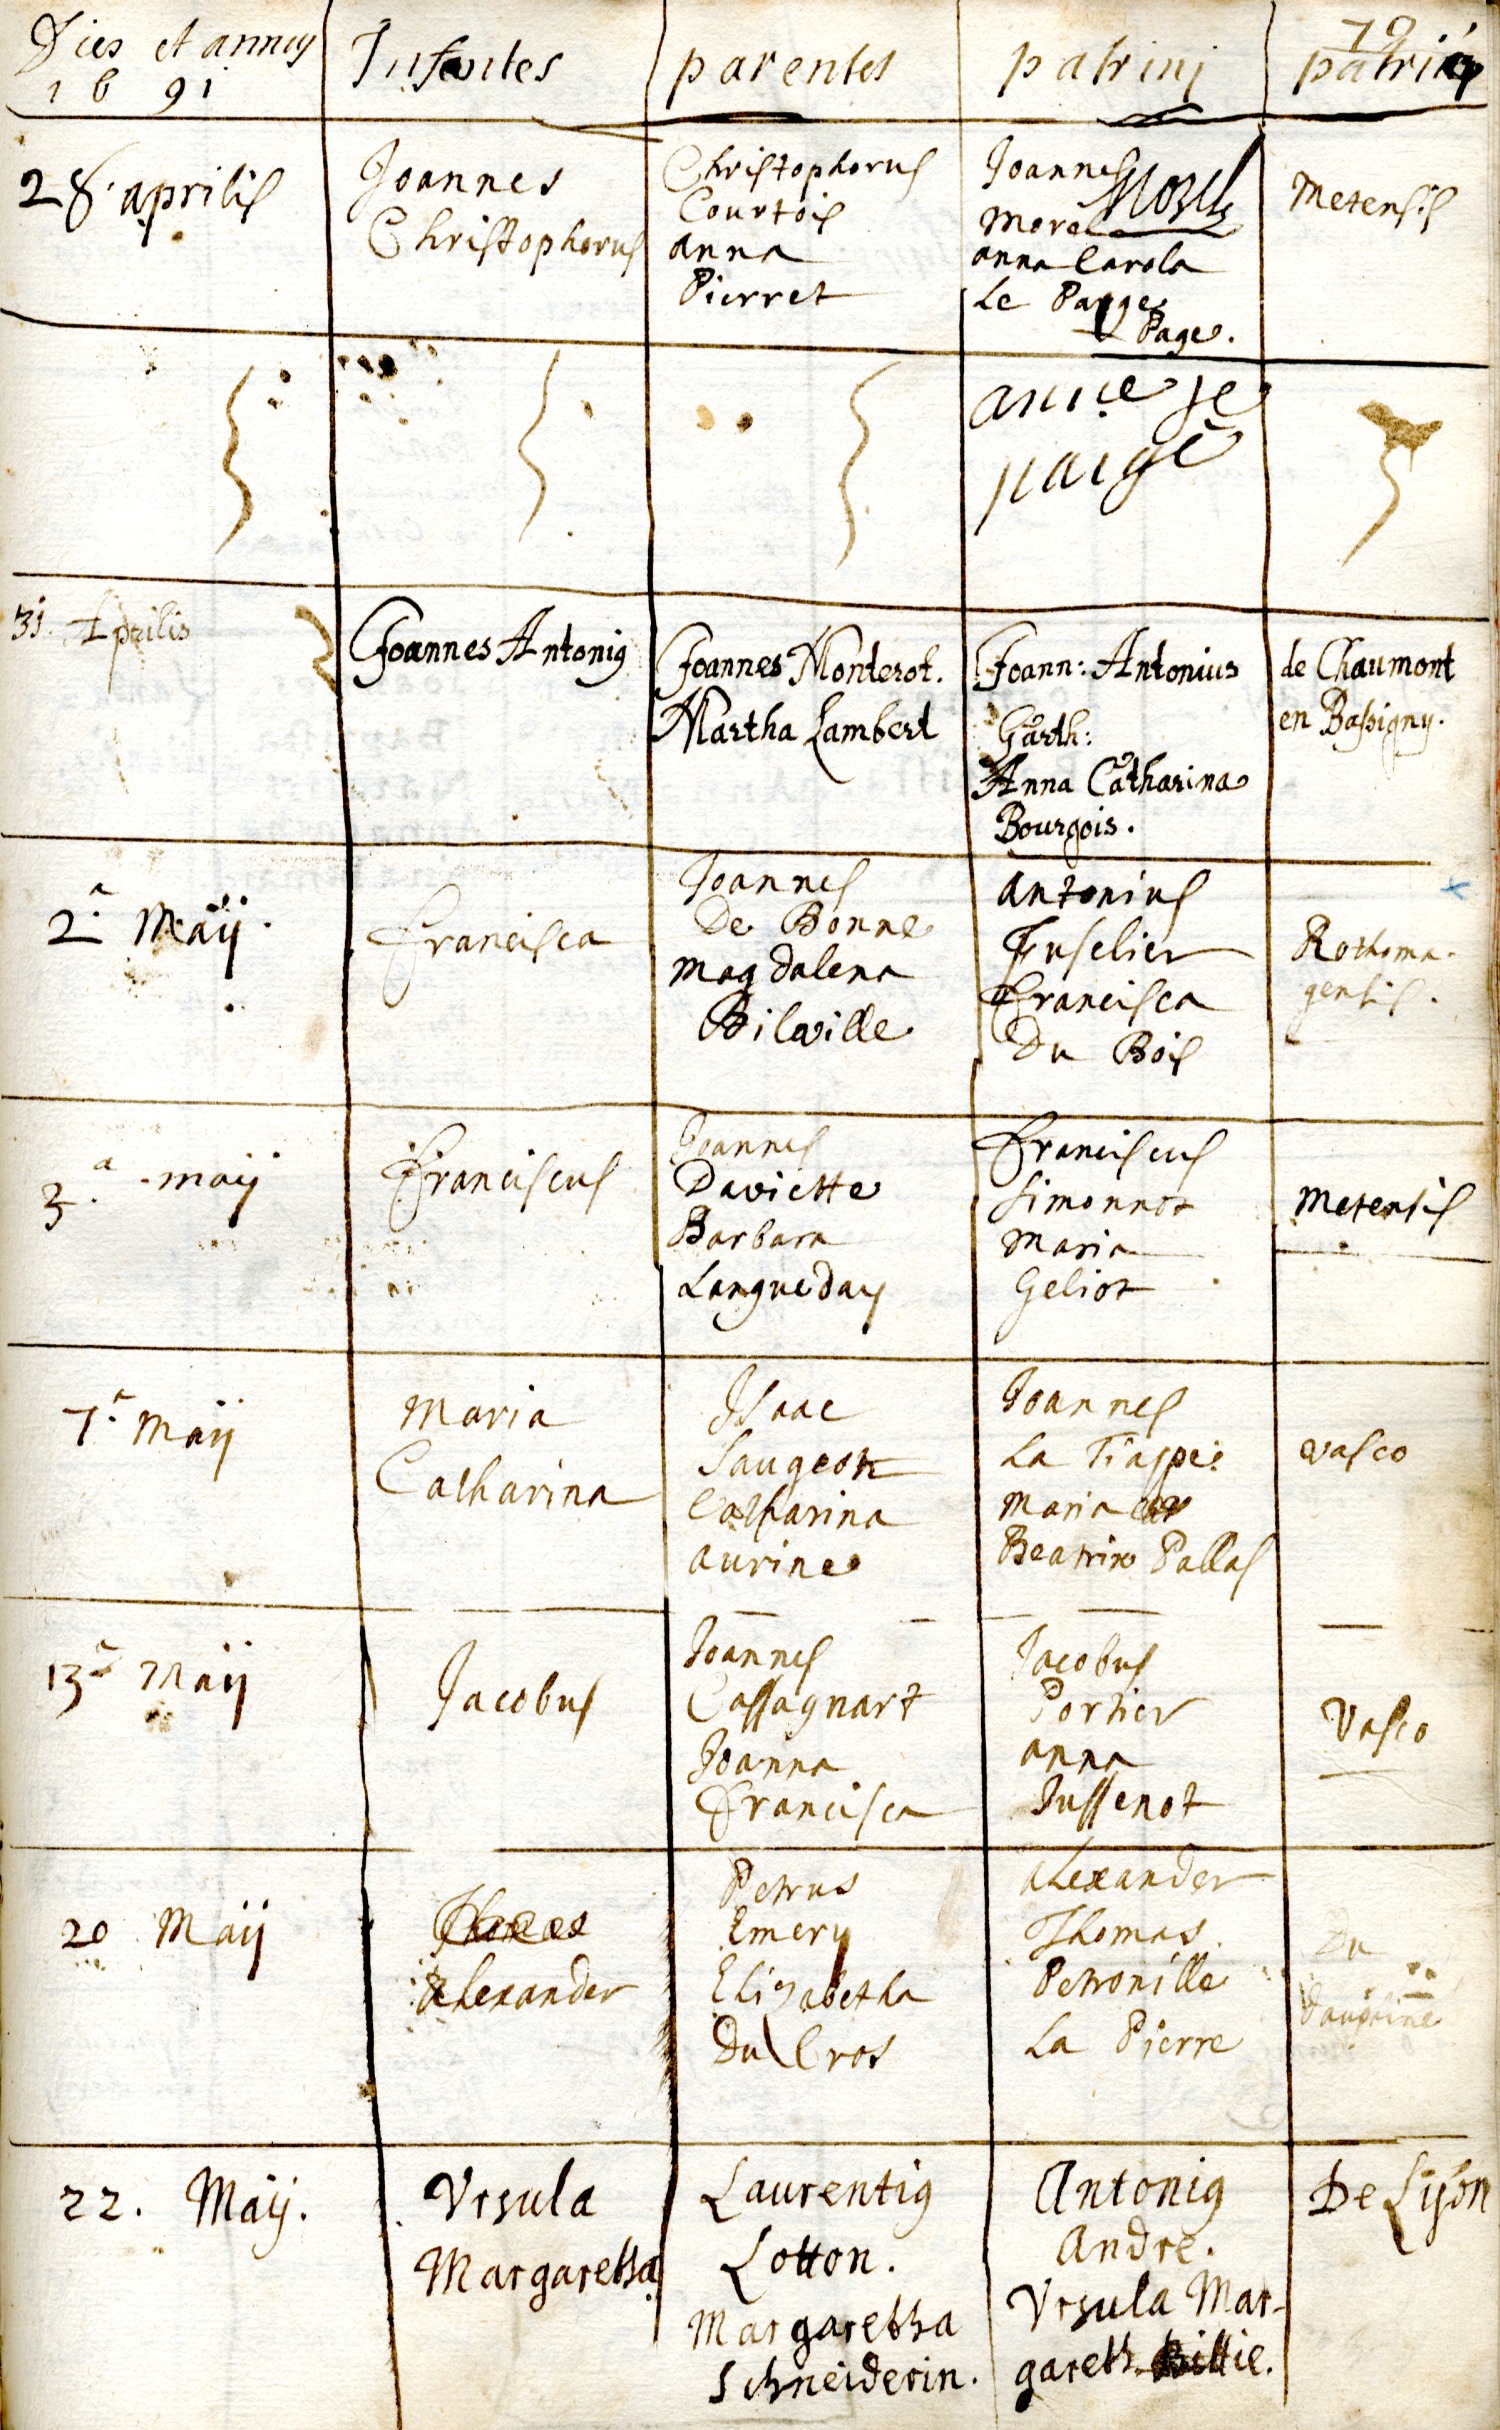 Dies et annus
1691
Infantes
parentes
patrini
79
patria
28. aprilis
Joannes
Christophorus
Christophorus
Courtois
anna
Pierret
Joannes
Morel
anna Carola
Le Page
Page.
Metensis
anne le
paige
31. Aprilis
Joannes Antonius
Joannes Monterot.
Martha Lambert
Joann: Antonius
Garth:
Anna Catharina
Bourgois.
de Chaumont
en Bassigny.
2.a Maij.
Francisca
Joannes
De Bonne
magdalena
Bilville
Antonius
Fuselier
Francisca
Du Bois
Rothoma-
gensis.
3.a maij
Franciscus
Joannes
Daviette
Barbara
Languedau
Franciscus
Simonnot
Maria
Geliot
Metensis
7.a Maij
Maria
Catharina
Isaac
Saugeon
Catharina
Aurine
Joannes
La
Maria
Beatrix Pallas
vasco
13.a Maij
Jacobus
Joannes
Cassagnart
Joanna
Francisca
Jacobus
Portier
anna
Jussenot
Vasco
20 Maij
Alexander
Petrus
Emery
Elizabetha
Du Cros
Alexander
Thomas.
Petronille
La Pierre
Du
Dauphiné
22. Maij.
Vrsula
Margaretha
Laurentius
Lotton.
Margaretha
Schneiderin.
Antonius
Andre.
Vrsula Mar-
gareth. Billie.
De Lyon